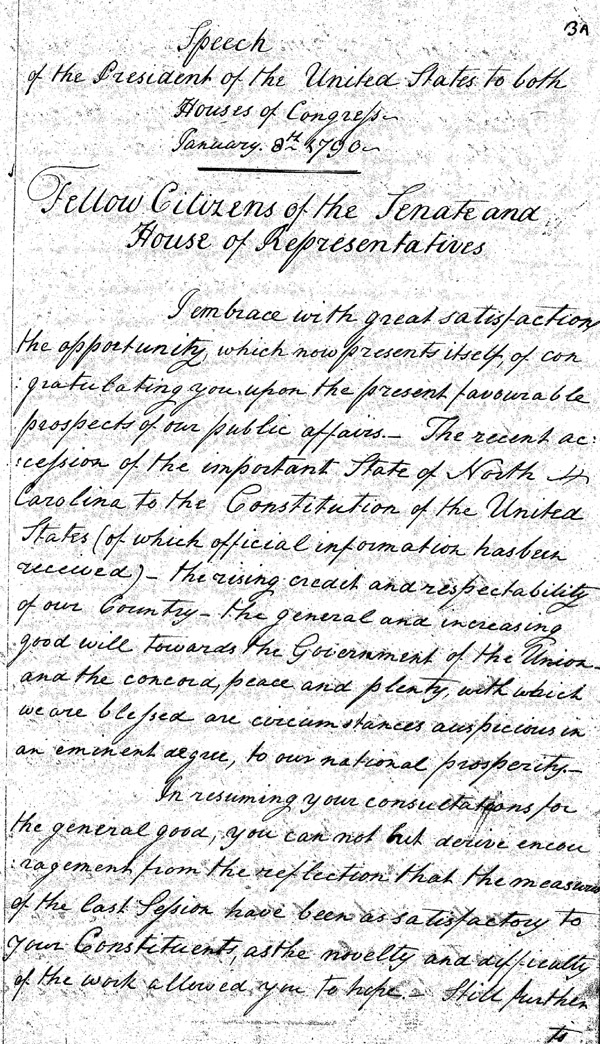 3A
Speech
of the President of the United States to both
Houses of Congress
January. 8th 1790
Fellow Citizens of the Senate and
House of Representatives
I embrace with great satisfaction
the opportunity, which now presents itself, of con
:gratulating you upon the present favourable
prospects of our public affairs. — The recent ac:
:cession of the important State of North
Carolina to the Constitution of the United
States (of which official information has been
received) — the rising credit and respectability
of our Country — the general and increasing
good will towards the Government of the Union —
and the concord, peace and plenty, with which
we are blessed are circumstances auspicious in
an eminent degree, to our national prosperity. —
In resuming your consultations for
the general good, you can not but derive encou
:ragement from the reflection that the measures
of the last Session have been as satisfactory to
your Constituents, as the novelty and difficulty
of the work allowed you to hope. — Still further
to